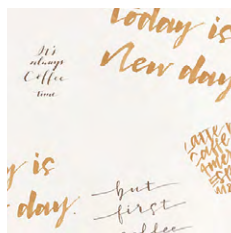 today is
New day
It's
always
Coffee
time
y is
day.
but
first
coffee
Latte